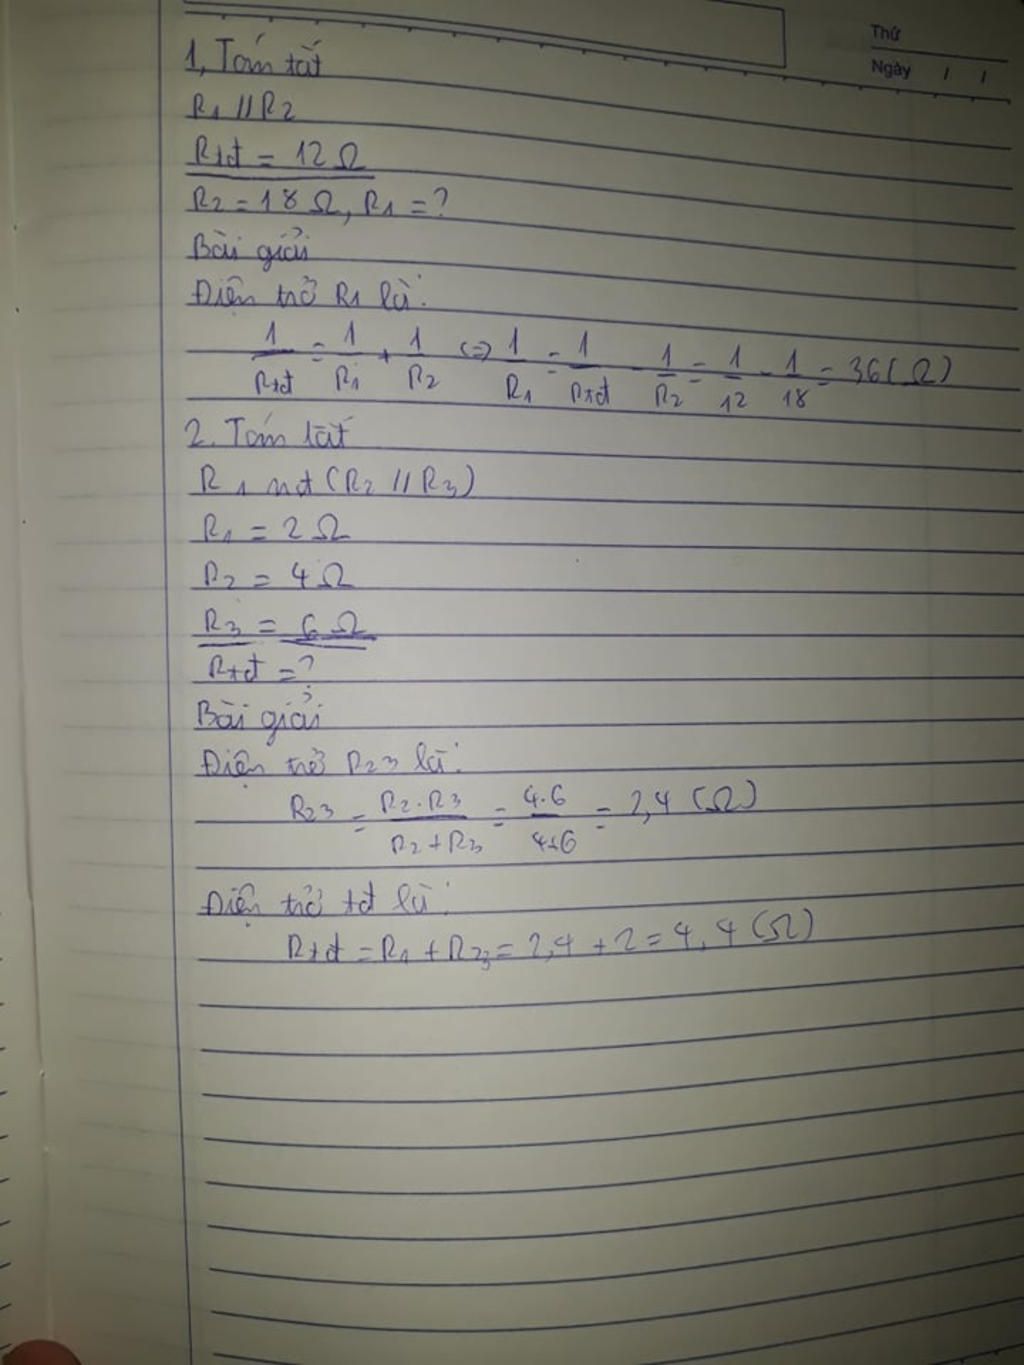 Thứ
Ngày / /
1, Tóm tắt
R1 // R2
Rtđ = 12 Ω
R2 = 18 Ω, R1 = ?
Bài giải
Điện trở R1 là:
1/Rtđ = 1/R1 + 1/R2 <=> 1/R1 = 1/Rtđ - 1/R2 = 1/12 - 1/18 = 36 (Ω)
2. Tóm tắt
R1 nt (R2 // R3)
R1 = 2 Ω
R2 = 4 Ω
R3 = 6 Ω
Rtđ = ?
Bài giải
Điện trở R23 là:
R23 = R2.R3/R2+R3 = 4.6/4+6 = 2,4 (Ω)
Điện trở tđ là:
Rtđ = R1 + R23 = 2,4 + 2 = 4,4 (Ω)